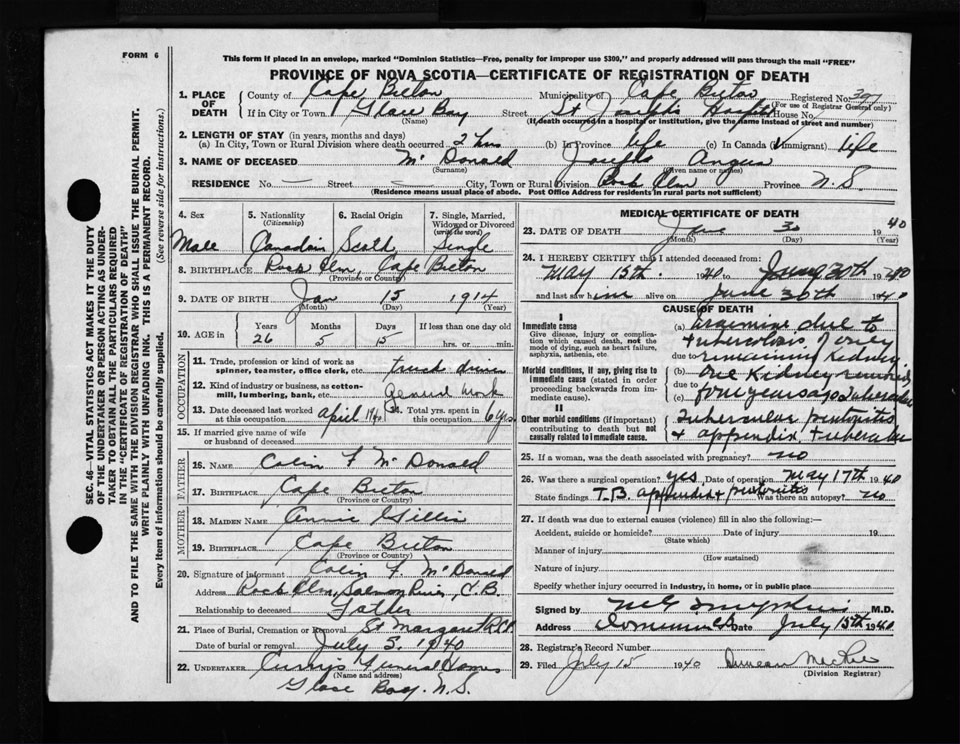 FORM 6
This form if placed in an envelope, marked "Dominion Statistics—Free, penalty for improper use $300," and properly addressed will pass through the mail "FREE"
PROVINCE OF NOVA SCOTIA—CERTIFICATE OF REGISTRATION OF DEATH
SEC. 46—VITAL STATISTICS ACT MAKES IT THE DUTY
OF THE UNDERTAKER OR PERSON ACTING AS UNDER-
TAKER TO OBTAIN ALL THE PARTICULARS REQUIRED
IN THE "CERTIFICATE OF REGISTRATION OF DEATH"
AND TO FILE THE SAME WITH THE DIVISION REGISTRAR WHO SHALL ISSUE THE BURIAL PERMIT.
WRITE PLAINLY WITH UNFADING INK. THIS IS A PERMANENT RECORD.
Every item of information should be carefully supplied. (See reverse side for instructions.)
1. PLACE OF DEATH County of Cape Breton Municipality of Cape Breton Registered No.
(For use of Registrar General only)
If in City or Town Glace Bay Street St Joseph's Hospital House No.
(Name) (If death occurred in a hospital or institution, give the name instead of street and number)
2. LENGTH OF STAY (in years, months and days)
(a) In City, Town or Rural Division where death occurred (b) In Province life (c) In Canada (if immigrant) life
3. NAME OF DECEASED McDonald Joseph Angus
(Surname) (Given name or names)
RESIDENCE No. — Street — City, Town or Rural Division Rock Elm Province N.S.
(Residence means usual place of abode. Post Office Address for residents in rural parts not sufficient)
4. Sex 5. Nationality 6. Racial Origin 7. Single, Married,
(Citizenship) Widowed or Divorced
(write the word)
Male Canadian Scotch Single
8. BIRTHPLACE Rock Elm, Cape Breton
(Province or Country)
9. DATE OF BIRTH Jan 15 1914
(Month) (Day) (Year)
10. AGE in Years Months Days If less than one day old
26 5 15 hrs. or min.
OCCUPATION
11. Trade, profession or kind of work as
spinner, teamster, office clerk, etc. truck driver
12. Kind of industry or business, as cotton-
mill, lumbering, bank, etc. General work
13. Date deceased last worked at this occupation April 1940 14. Total yrs. spent in this occupation 6 yrs.
15. If married give name of wife
or husband of deceased
FATHER
16. NAME Colin F McDonald
17. BIRTHPLACE Cape Breton
(Province or Country)
MOTHER
18. MAIDEN NAME Annie Gillis
19. BIRTHPLACE Cape Breton
(Province or Country)
20. Signature of informant Colin F. McDonald
Address Rock Elm, Salmon River, C.B.
Relationship to deceased Father
21. Place of Burial, Cremation or Removal St Margaret
Date of burial or removal July 3. 1940
22. UNDERTAKER Curry's Funeral Home
(Name and address)
Glace Bay. N.S.
MEDICAL CERTIFICATE OF DEATH
23. DATE OF DEATH June 30 1940
(Month) (Day) (Year)
24. I HEREBY CERTIFY that I attended deceased from:
May 15th. 1940 to June 30th 1940
and last saw him alive on June 30th 1940
CAUSE OF DEATH
I
Immediate cause
Give disease, injury or complica-
tion which caused death, not the
mode of dying, such as heart failure,
asphyxia, asthenia, etc.
(a) Uraemia due to
Tuberculosis of only
due to remaining Kidney
Morbid conditions, if any, giving rise to
immediate cause (stated in order
proceeding backwards from im-
mediate cause).
(b) One Kidney removed
due to
(c) four years ago Tubercular
II
Other morbid conditions (if important)
contributing to death but not
causally related to immediate cause.
Tubercular peritonitis
+ appendix Tubercular
25. If a woman, was the death associated with pregnancy? no
26. Was there a surgical operation? yes Date of operation May 17th 1940
State findings T.B. appendix + peritonitis Was there an autopsy? no
27. If death was due to external causes (violence) fill in also the following:—
Accident, suicide or homicide? Date of injury 19
(State which)
Manner of injury
(How sustained)
Nature of injury
Specify whether injury occurred in industry, in home, or in public place
Signed by M.D.
Address Dominion Date July 15th 1940
28. Registrar's Record Number
29. Filed July 15 1940 Duncan
(Division Registrar)